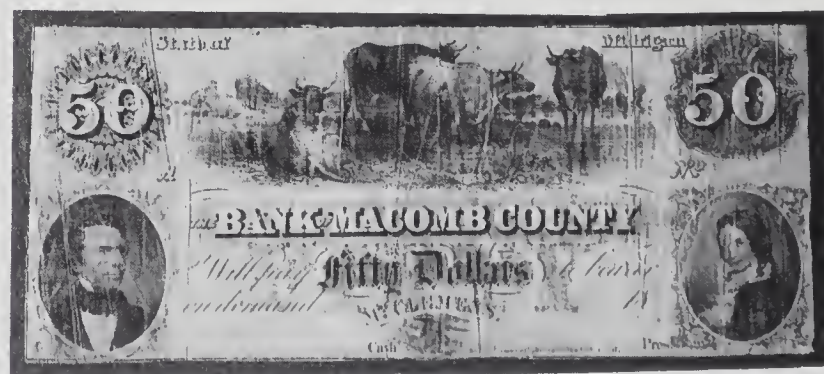 State of Michigan
50 50
A No
THE BANK OF MACOMB COUNTY
Will pay Fifty Dollars to bearer
on demand MT. CLEMENS
Cash Pres